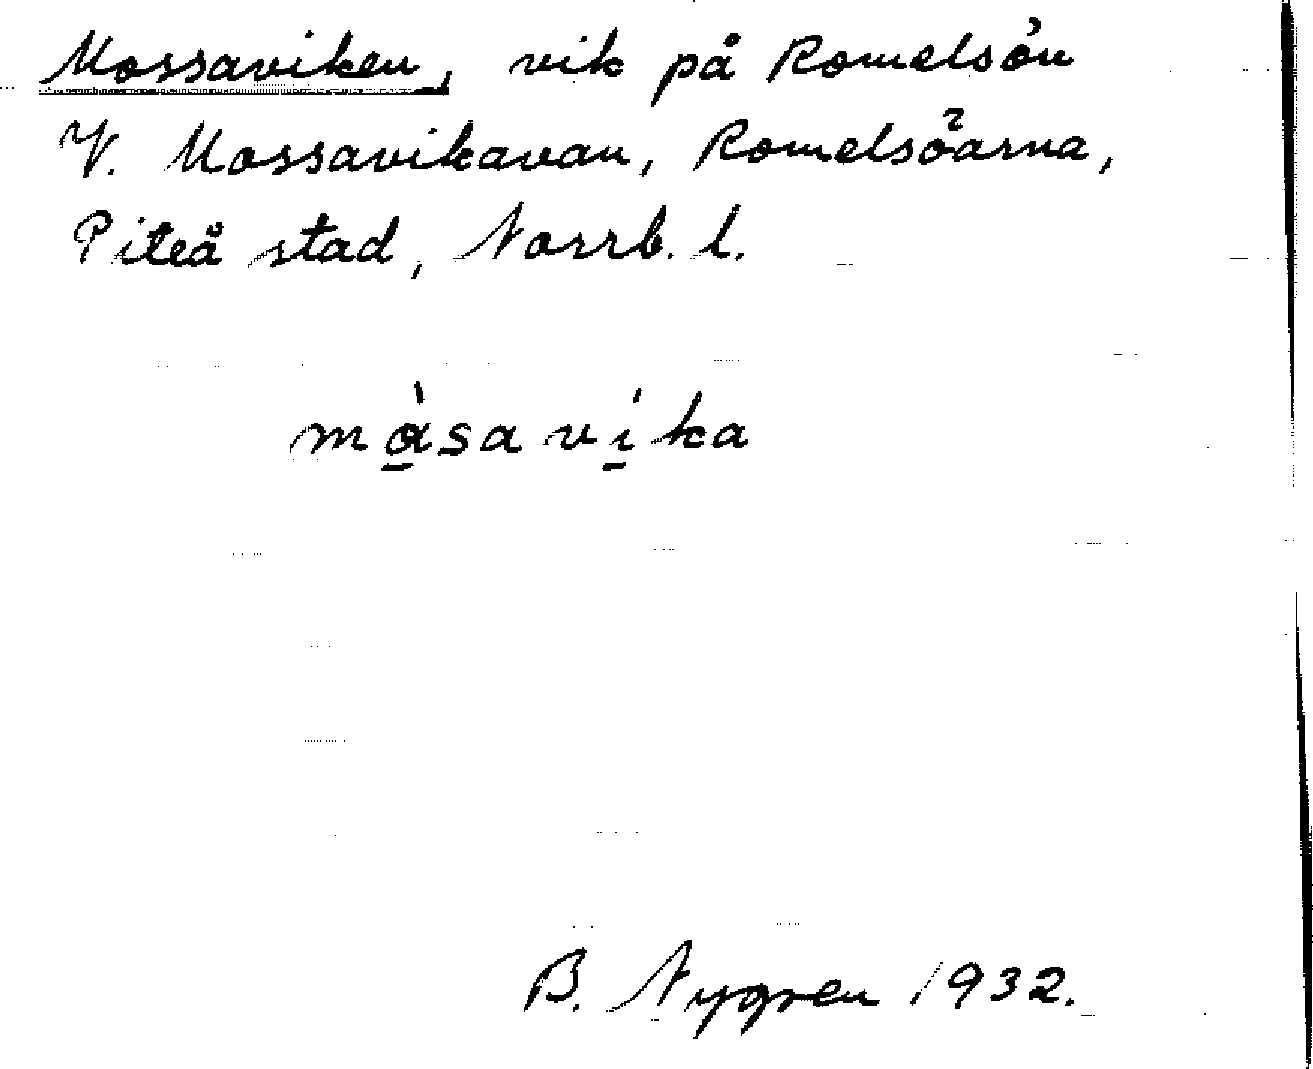 Mossaviken, vik på Romelsön
V. Mossavikavan, Romelsöarna,
Piteå stad, Norrb. l.
mὰ̱sa ví̱ka
B. Nygren 1932.